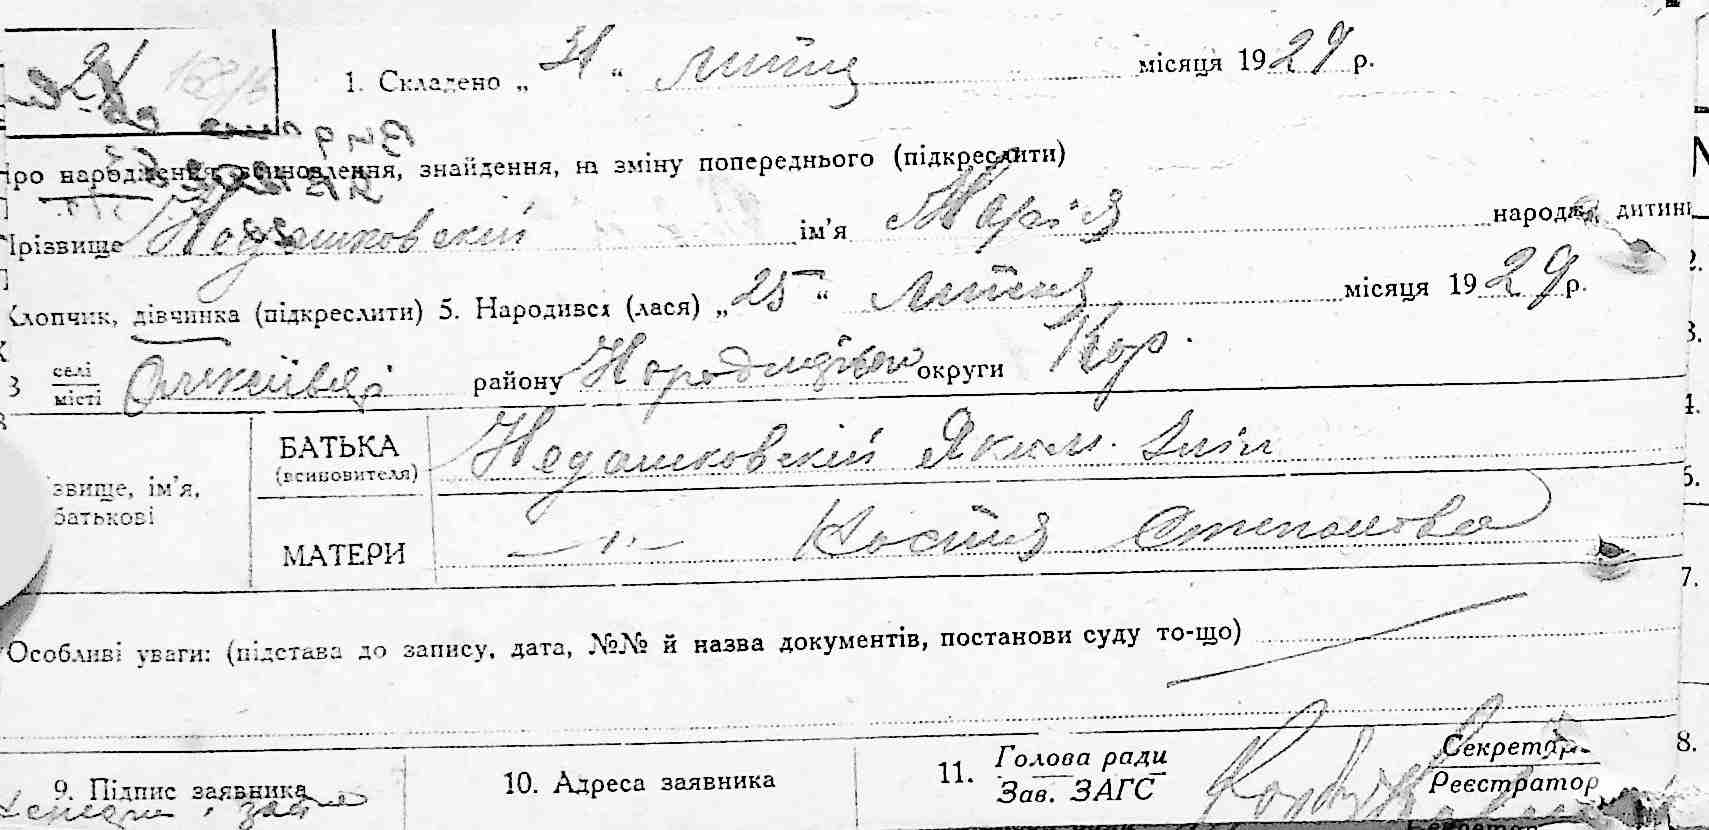 1. Складено „ 31 “ липня місяця 1929 р.
Про народження, всиновлення, знайдення, на зміну попереднього (підкреслити)
Прізвище Недашковскій ім’я Марія народж. дитини
Хлопчик, дівчинка (підкреслити) 5. Народився (лася) „ 25 “ липня місяця 1929 р.
В селі
місті району Народицького округи Кор.
БАТЬКА Недашковскій Яким
(всиновителя)
звище, ім’я,
батькові
МАТЕРИ —"— Настя Степанова
Особливі уваги: (підстава до запису, дата, №№ й назва документів, постанови суду то-що)
9. Підпис заявника
10. Адреса заявника
11. Голова ради
Зав. ЗАГС
Секретар
Реєстратор
2.
3.
4.
5.
7.
8.